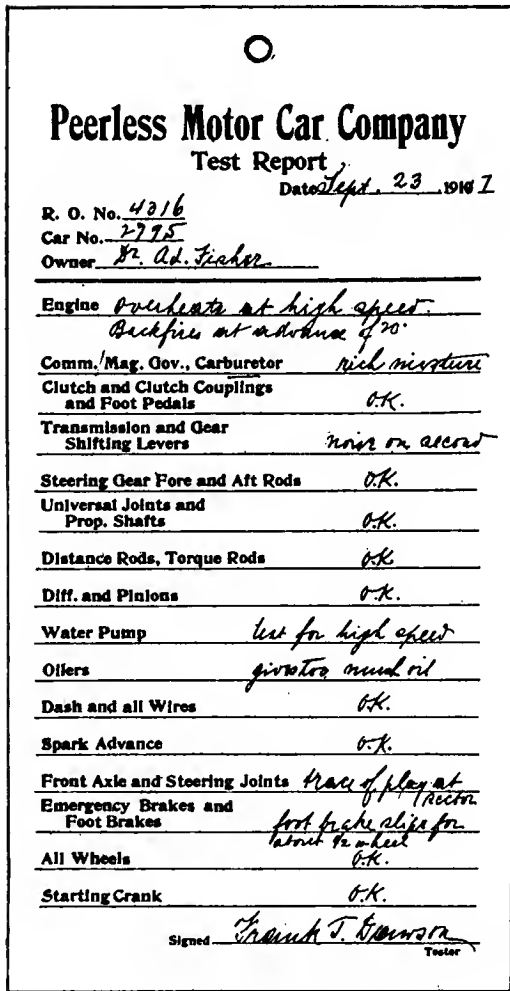 Peerless Motor Car Company
Test Report
Date Sept. 23, 191 1
R. O. No. 4316
Car No. 2795
Owner Dr. Ad. Fisher
Engine overheats at high speed.
Backfires at advance of 20°
Comm./Mag. Gov., Carburetor rich mixture
Clutch and Clutch Couplings
and Foot Pedals O.K.
Transmission and Gear
Shifting Levers noisy on second
Steering Gear Fore and Aft Rods O.K.
Universal Joints and
Prop. Shafts O.K.
Distance Rods, Torque Rods O.K
Diff. and Pinions O.K.
Water Pump test for high speed
Oilers gives too much oil
Dash and all Wires O.K.
Spark Advance O.K.
Front Axle and Steering Joints trace of play at
Emergency Brakes and
Foot Brakes foot brake slips for
about 1/2 wheel
All Wheels O.K.
Starting Crank O.K.
Signed Frank T. Dawson
Tester